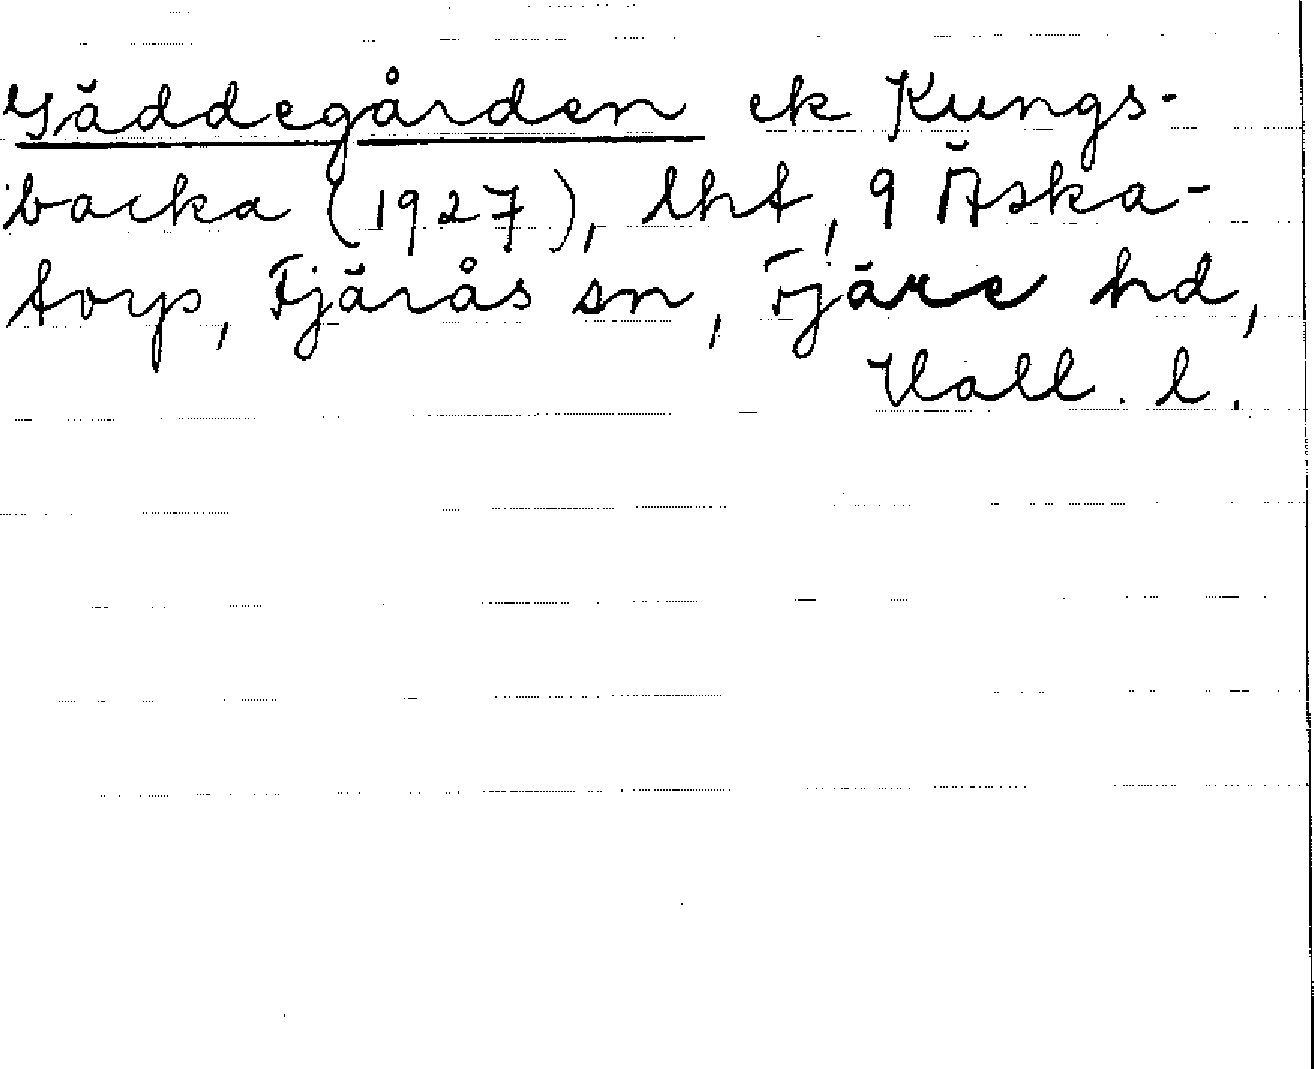 Gäddegården ek Kungs-
backa (1927), lht, 9 Äska-
torp, Fjärås sn, Fjäre hd,
Hall. l.